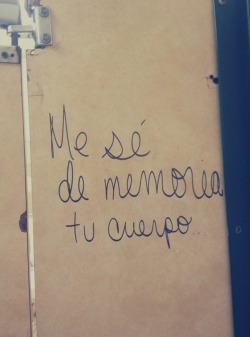 Me sé
de memoria
tu cuerpo